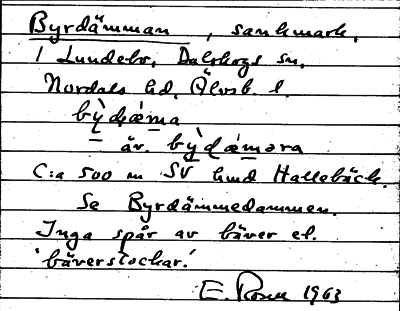 Byrdämman, sankmark,
i Lundebo, Dalskogs sn,
Nordals hd, Älvsb. l.
bỳdǽma
äv. bỳdǽməra
C:a 500 m SV hmd Hallebäck.
Se Byrdämmedammen.
Inga spår av bäver el.
'bäverstockar.'
E. Rosell 1963